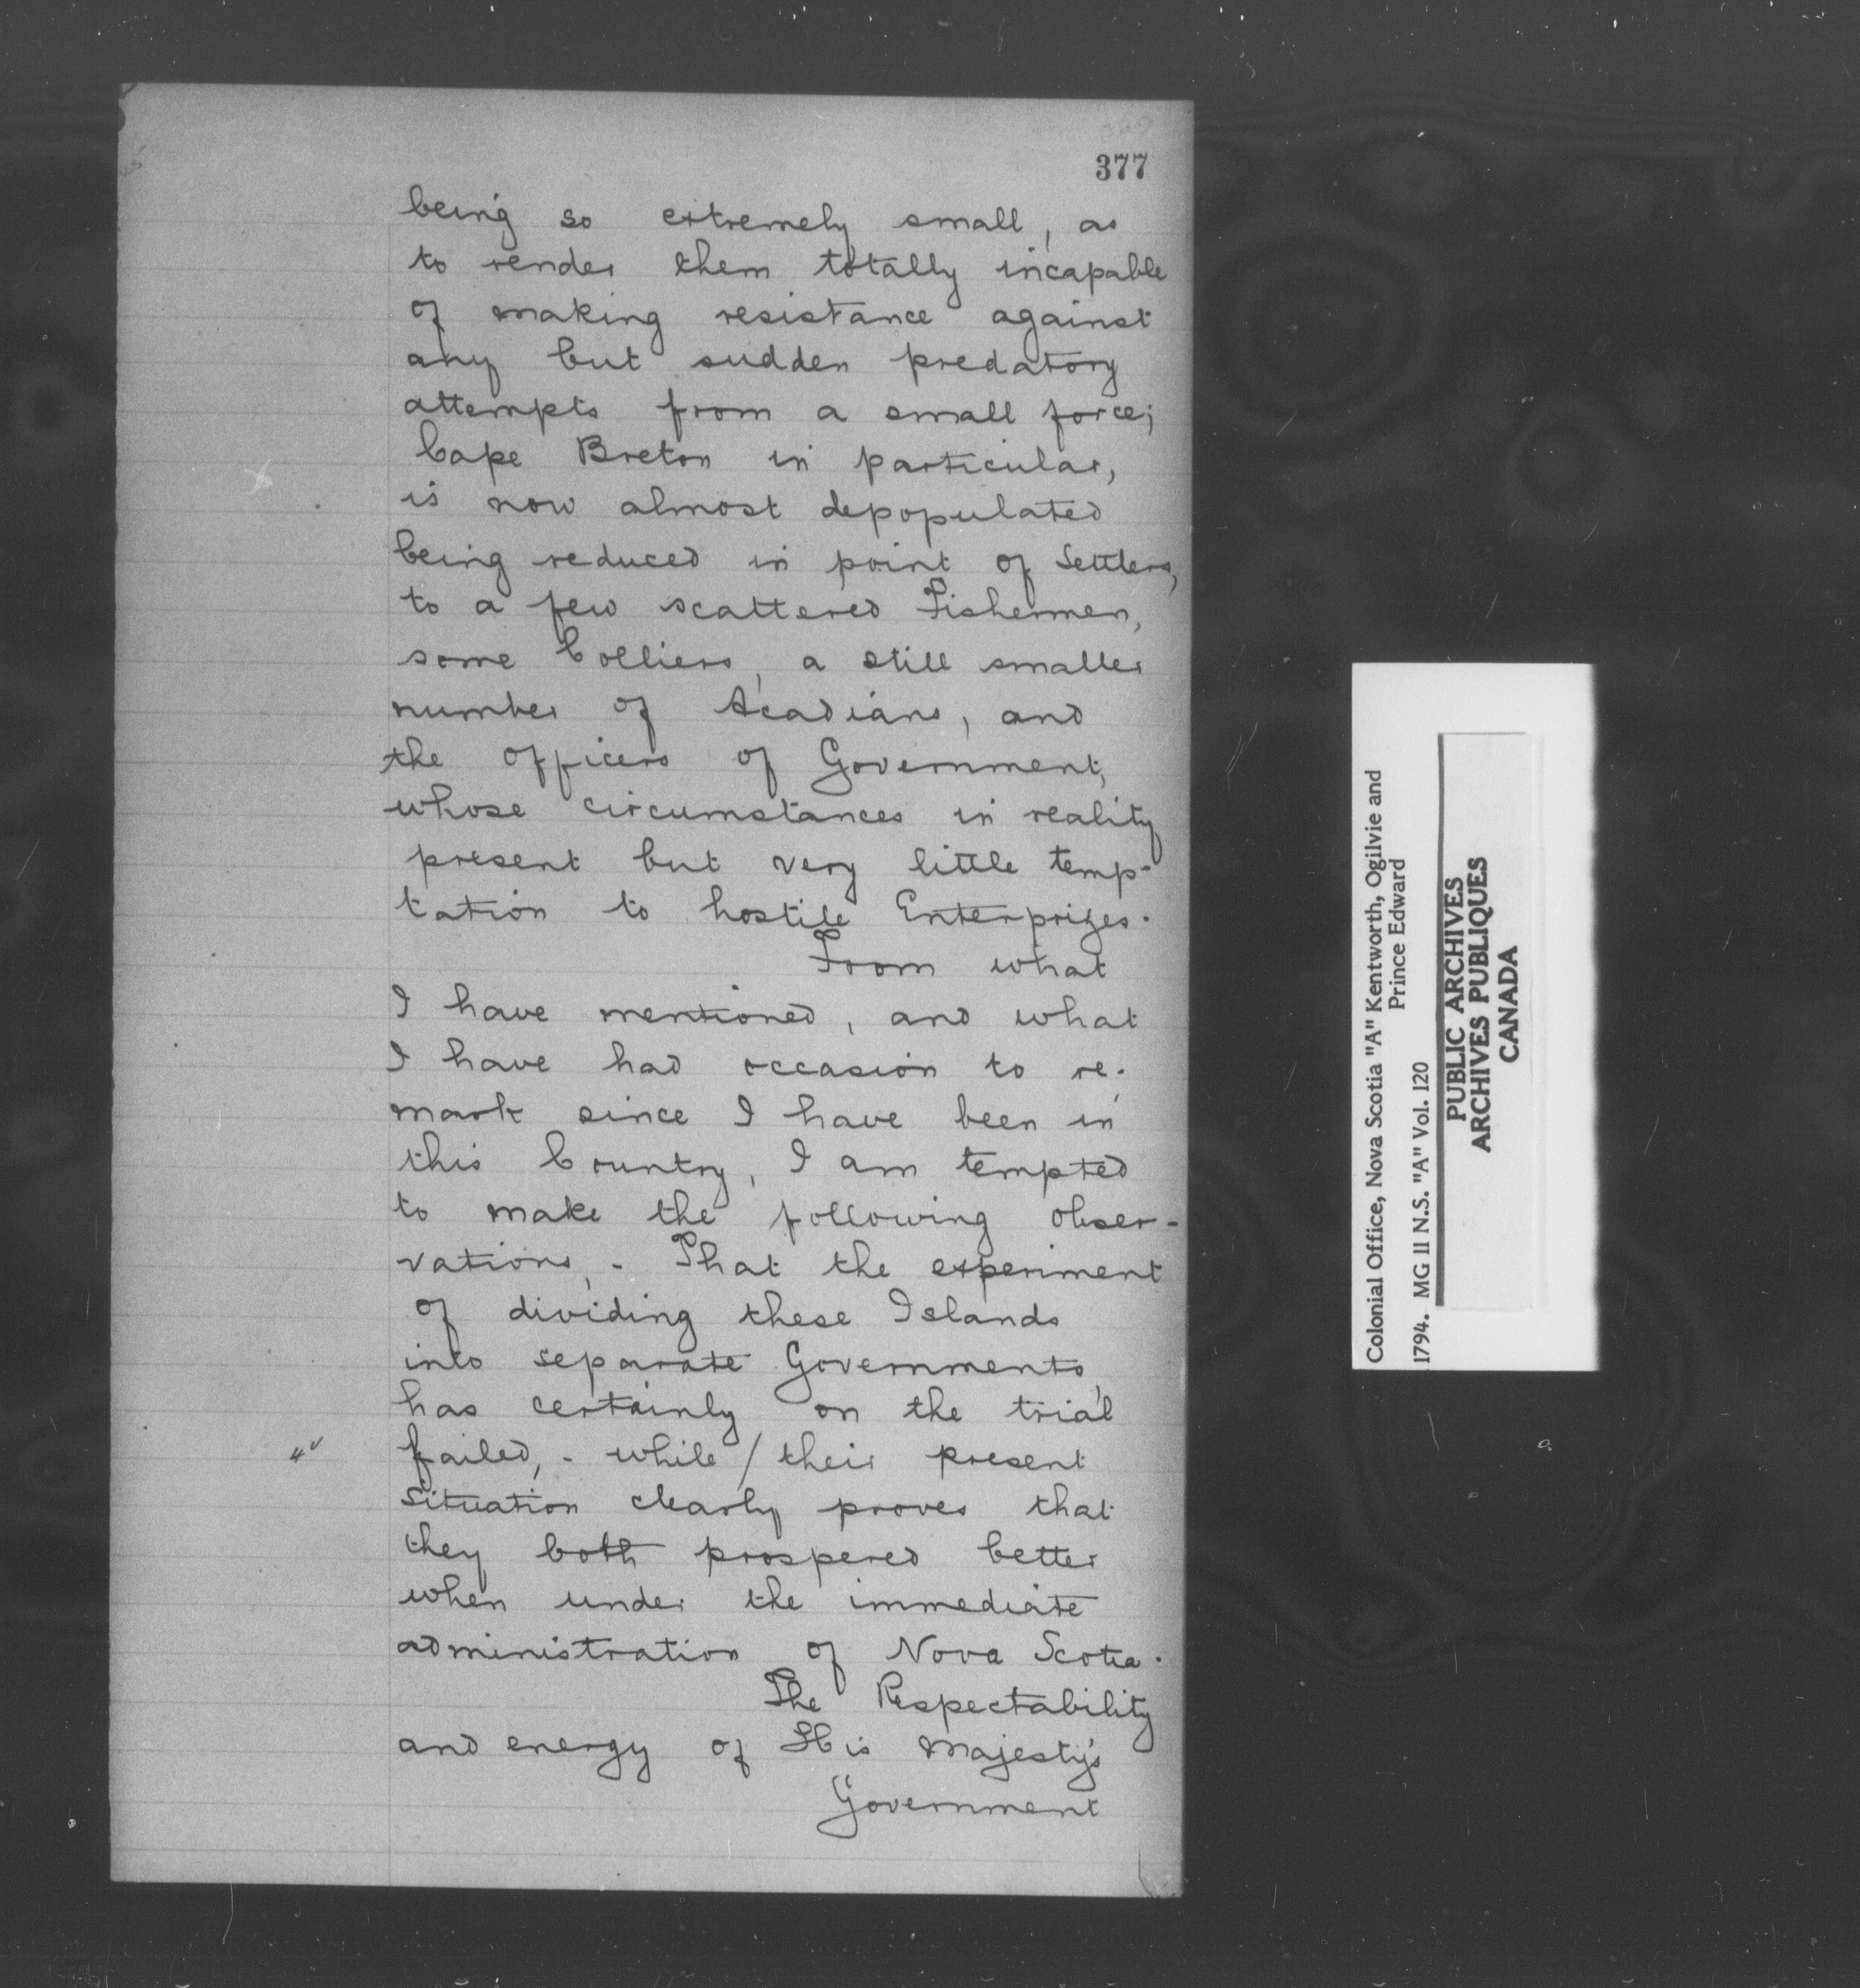 377
being so extremely small, as
to render them totally incapable
of making resistance against
any but sudden predatory
attempts from a small force;
Cape Breton in particular,
is now almost depopulated
being reduced in point of Settlers,
to a few scattered Fishermen,
some Colliers, a still smaller
number of Acadians, and
the officers of Government,
whose circumstances in reality
present but very little temp-
tation to hostile Enterprizes.
From what
I have mentioned, and what
I have had occasion to re-
mark since I have been in
this Country, I am tempted
to make the following obser-
vations, - That the experiment
of dividing these Islands
into separate Governments,
has certainly on the trial
failed, - while / their present
situation clearly proves that
they both prospered better
when under the immediate
administration of Nova Scotia.
The Respectability
and energy of His Majesty's
Government
Colonial Office, Nova Scotia "A" Kentworth, Ogilvie and
Prince Edward
1794. MG 11 N.S. "A" Vol. 120
PUBLIC ARCHIVES
ARCHIVES PUBLIQUES
CANADA